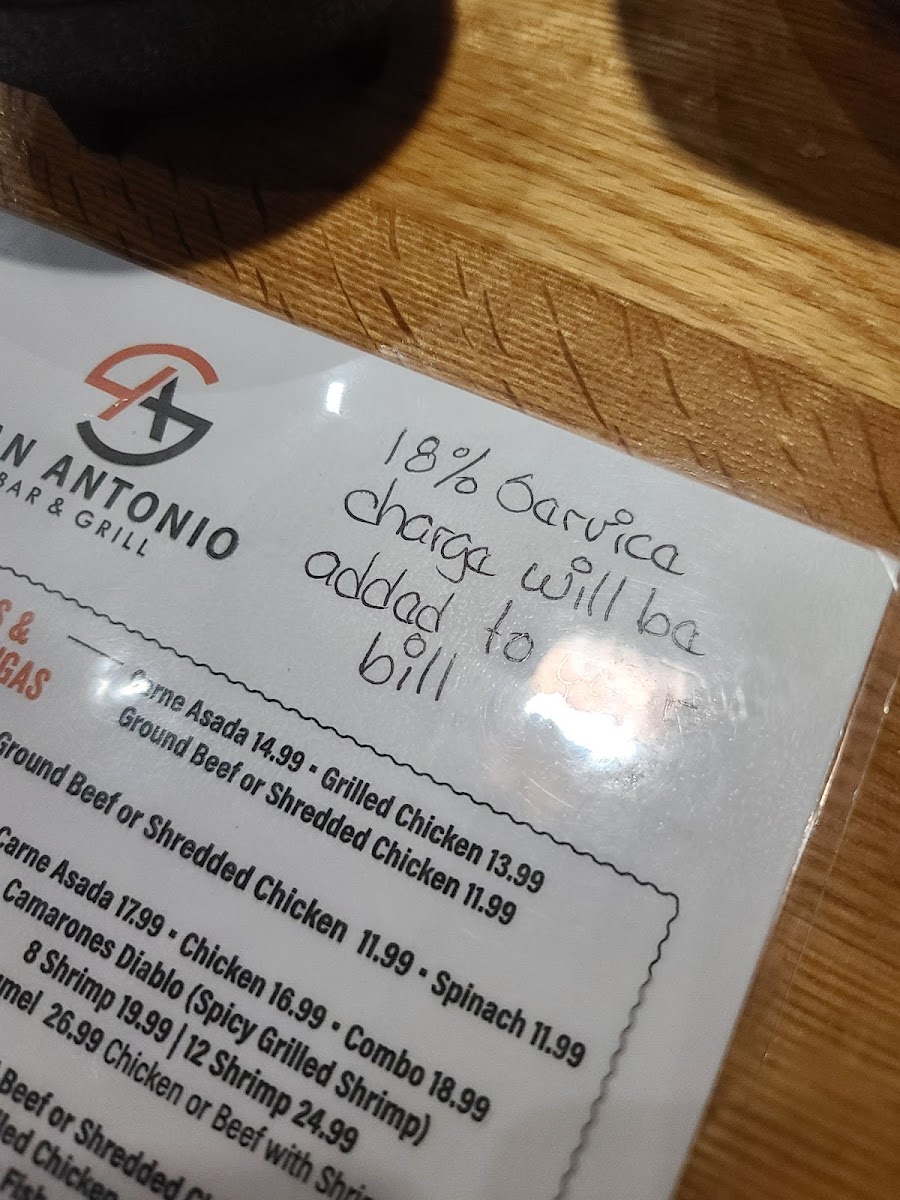 AN ANTONIO
BAR & GRILL
18% Service
charge will be
added to
bill
S &
GAS
Carne Asada 14.99 • Grilled Chicken 13.99
Ground Beef or Shredded Chicken 11.99
Ground Beef or Shredded Chicken 11.99 • Spinach 11.99
Carne Asada 17.99 • Chicken 16.99 • Combo 18.99
Camarones Diablo (Spicy Grilled Shrimp)
8 Shrimp 19.99 | 12 Shrimp 24.99
mel 26.99 Chicken or Beef with Shri
Beef or Shredded C
lled Chicken
Fish